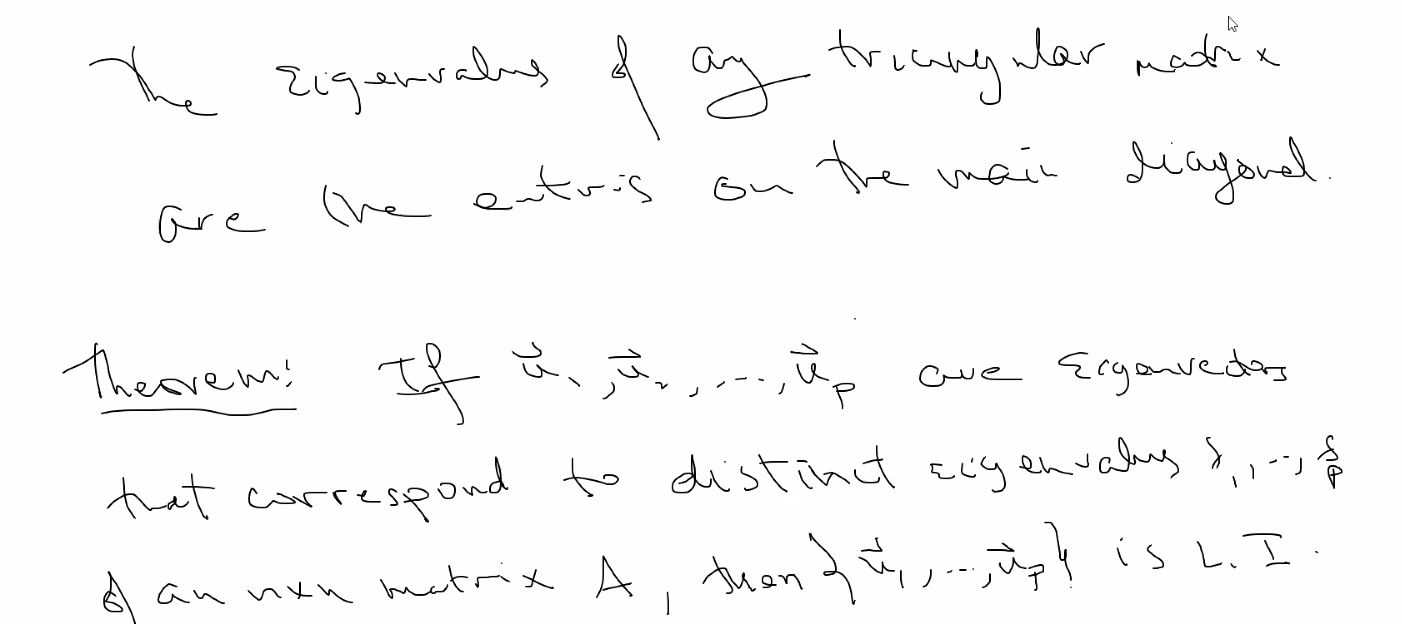 The Eigenvalues of any triangular matrix
are the entries on the main diagonal.
Theorem: If u⃗₁, u⃗₂, ..., u⃗ₚ are Eigenvectors
that correspond to distinct eigenvalues λ₁, ..., λₚ
of an n×n matrix A, then {u⃗₁, ..., u⃗ₚ} is L.I.